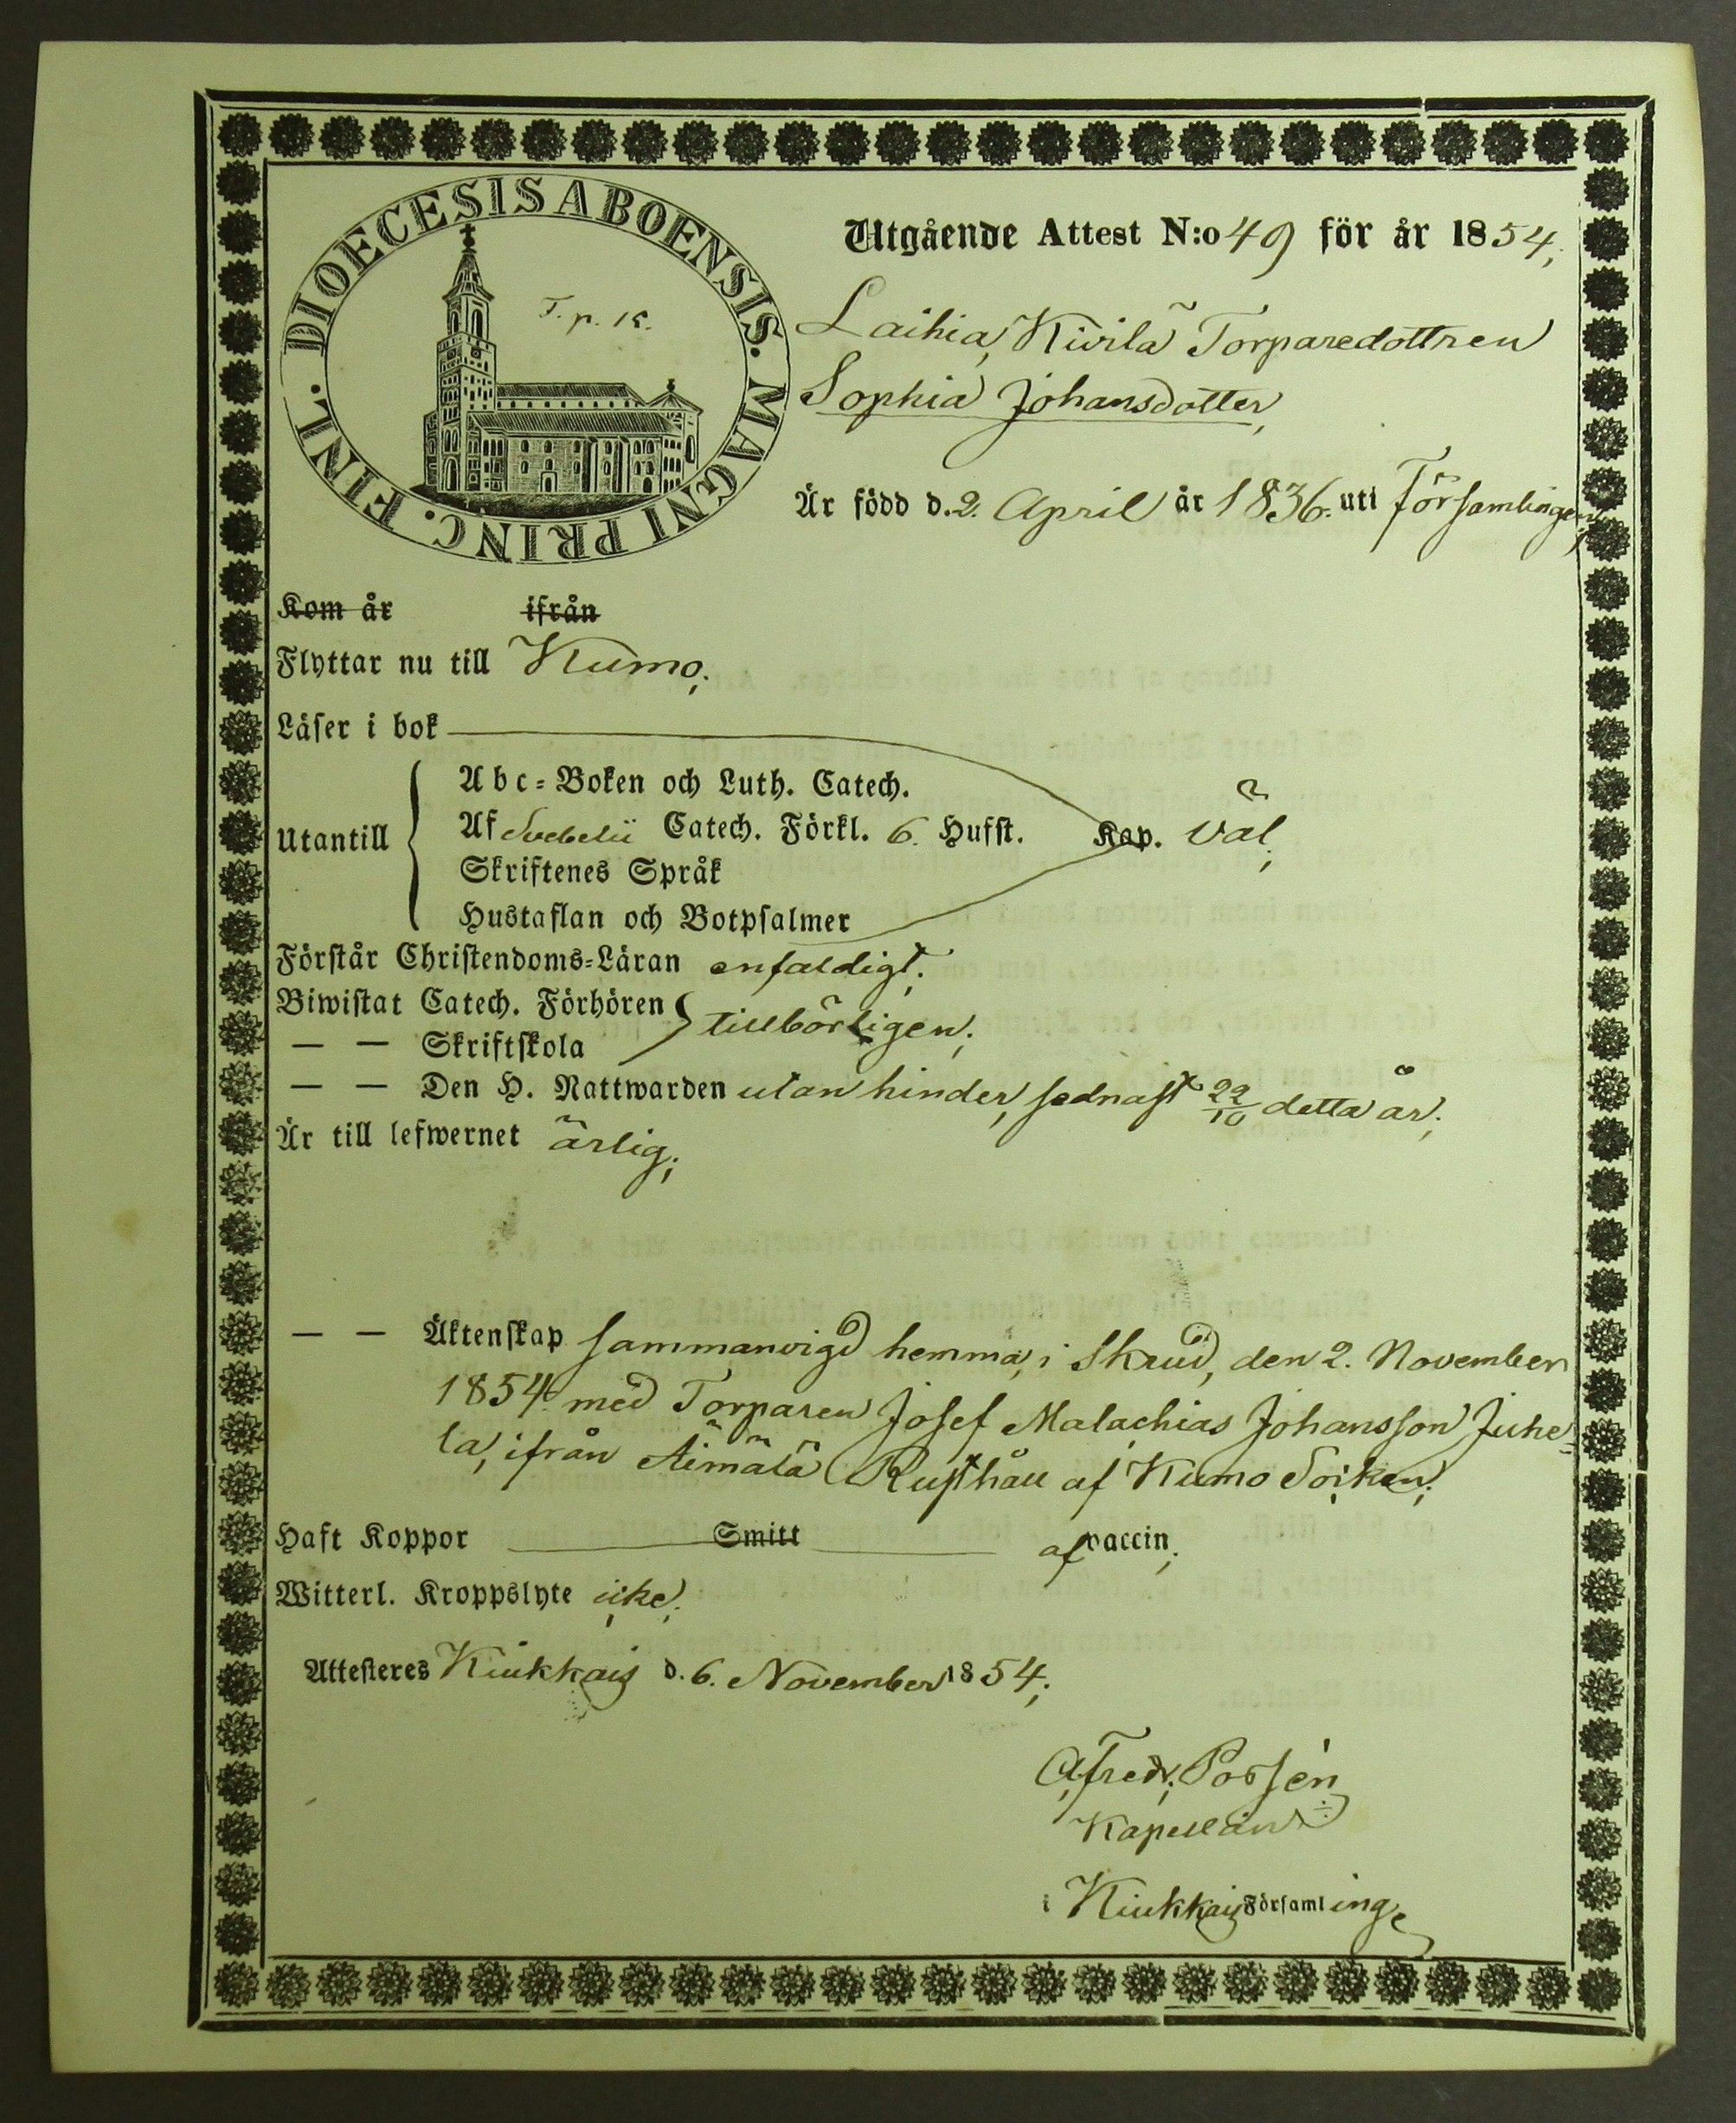 DIOECESIS ABOENSIS. MAGNI PRINC. FINL.
T. p. K.
Utgående Attest N:o 49 för år 1854;
Laihia, Kivilä Torparedottren
Sophia Johansdotter,
Är född d. 2. April år 1836. uti Församlingen;
Kom år ifrån
Flyttar nu till Kumo;
Läser i bok
Utantill
Abc-Boken och Luth. Catech.
Af Svebelii Catech. Förkl. 6. Hufst. Kap. väl;
Skriftenes Språk
Hustaflan och Botpsalmer
Förstår Christendoms-Läran enfaldigt;
Biwistat Catech. Förhören
— — Skriftskola tillbörligen;
— — Den H. Nattwarden utan hinder, sednast 22/10 detta år;
Är till lefwernet ärlig;
— — Äktenskap sammanvigd hemma, i Skrud, den 2. November
1854. med Torparen Josef Malachias Johansson Juhe-
la, ifrån Äimälä Rusthåll af Kumo Socken;
Haft Koppor Smitt af vaccin;
Witterl. Kroppslyte icke;
Attesteres Kiukkais d. 6. November 1854;
A. Fredr. Porsén
Kapellan
i Kiukkais Församling